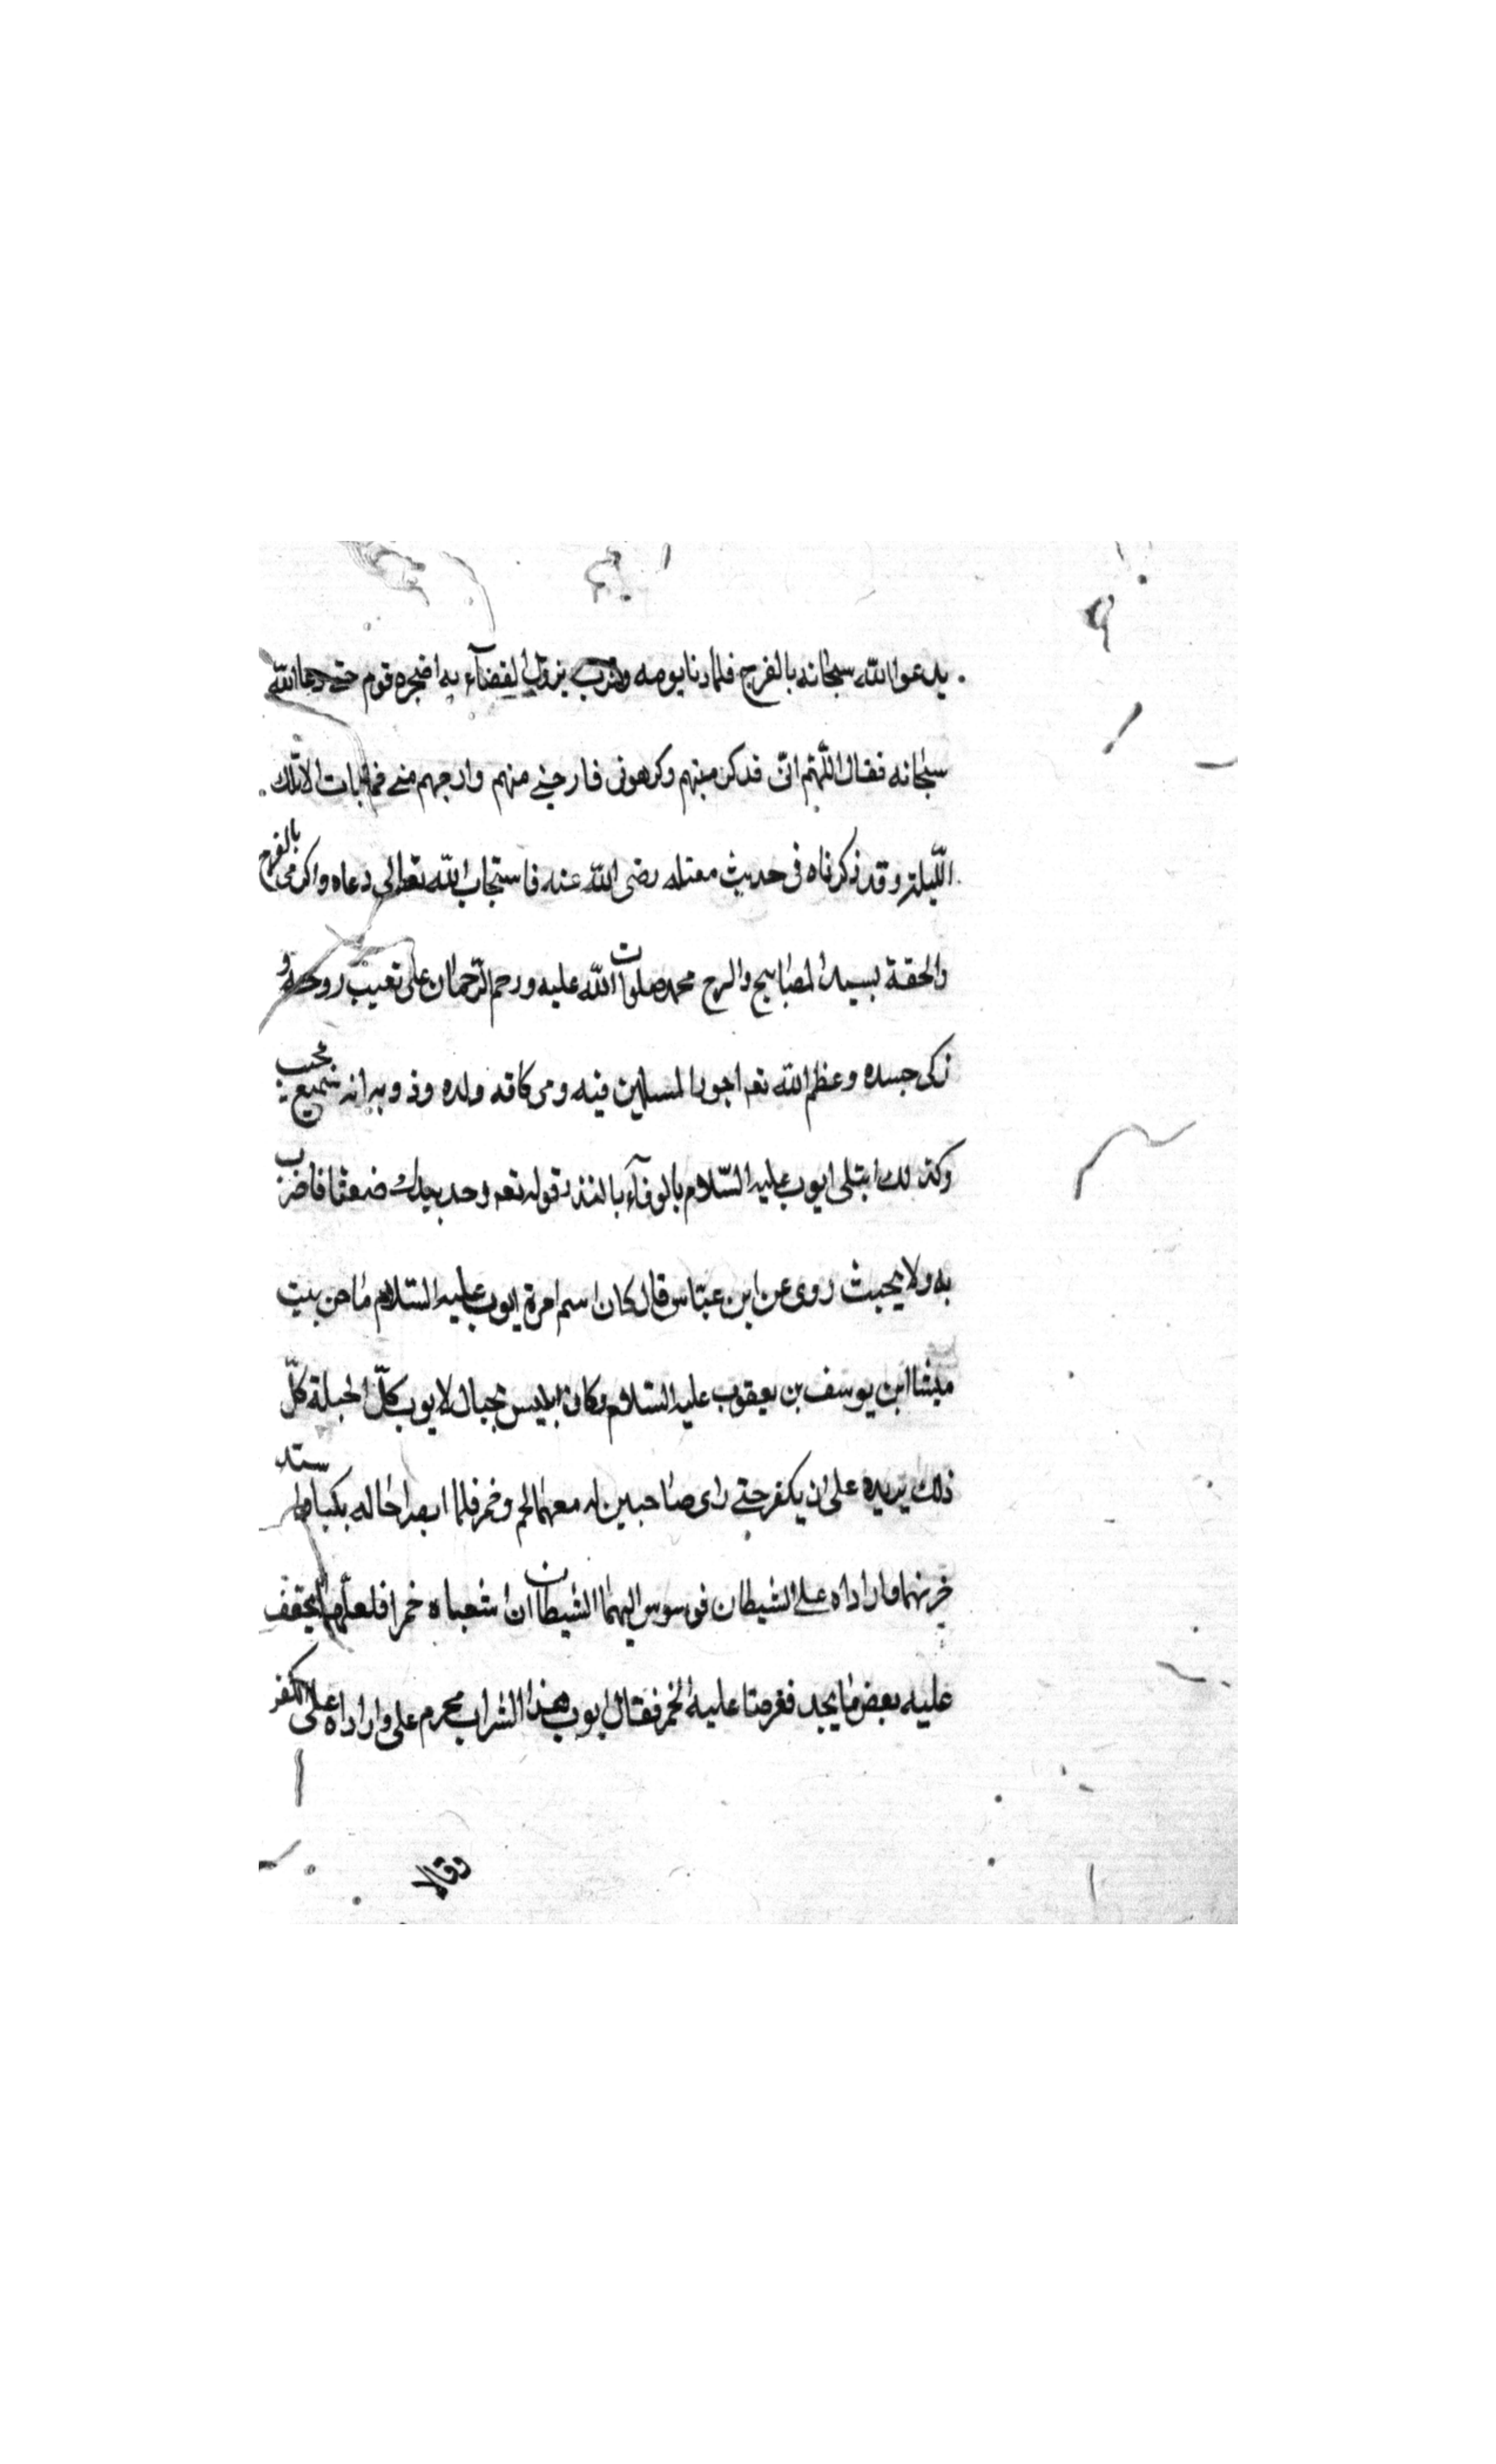 يدعوا الله سبحانه بالفرج فلما دنا يومه وقرب نزول القضآء به اضجره قوم حتى دعا الله
سبحانه فقال اللّهمّ انّى قد كرهتهم وكرهونى فارحنى منهم وارحهم منى فما بات الا تلك
اللّيلة وقد ذكرناه فى حديث مقتله رضى الله عنه فاستجاب الله تعالى دعاه واكرمى بالفرج
والحقه بسيد المصابيح والسرج محمد صلوات الله عليه ورحم الرّحمان على تعيب روحه و
زكى جسده وعظم الله تعه اجور المسلمين فيه ومن كافه ولده وذويه انه سميع مجيب
وكذلك ابتلى ايوب عليه السّلام بالوفآء بالنذر قوله تعه وخد بيدك ضعثا فاضرب
به ولا تحنث روى عن ابن عبّاس قال كان اسم امرة ايوب عليه السّلام ماحن بنت
ميشا ابن يوسف بن يعقوب عليه السّلام وكان ابليس يحتال لايوب كلّ الحيلة كلّ
ذلك يريده على ان يكفر حتى راى صاحبين له معهما لحم وخمر فلما ابصرا حاله بكيا و ستد
حزنهما واراداه على الشيطان فوسوس اليهما الشيطان ان اشعباه خمرا فلعلّهما يخفف
عليه بعض ما يجد فعرضا عليه الخمر فقال ايوب هذا الشراب محرم على واراداه على الكفر
وقالا